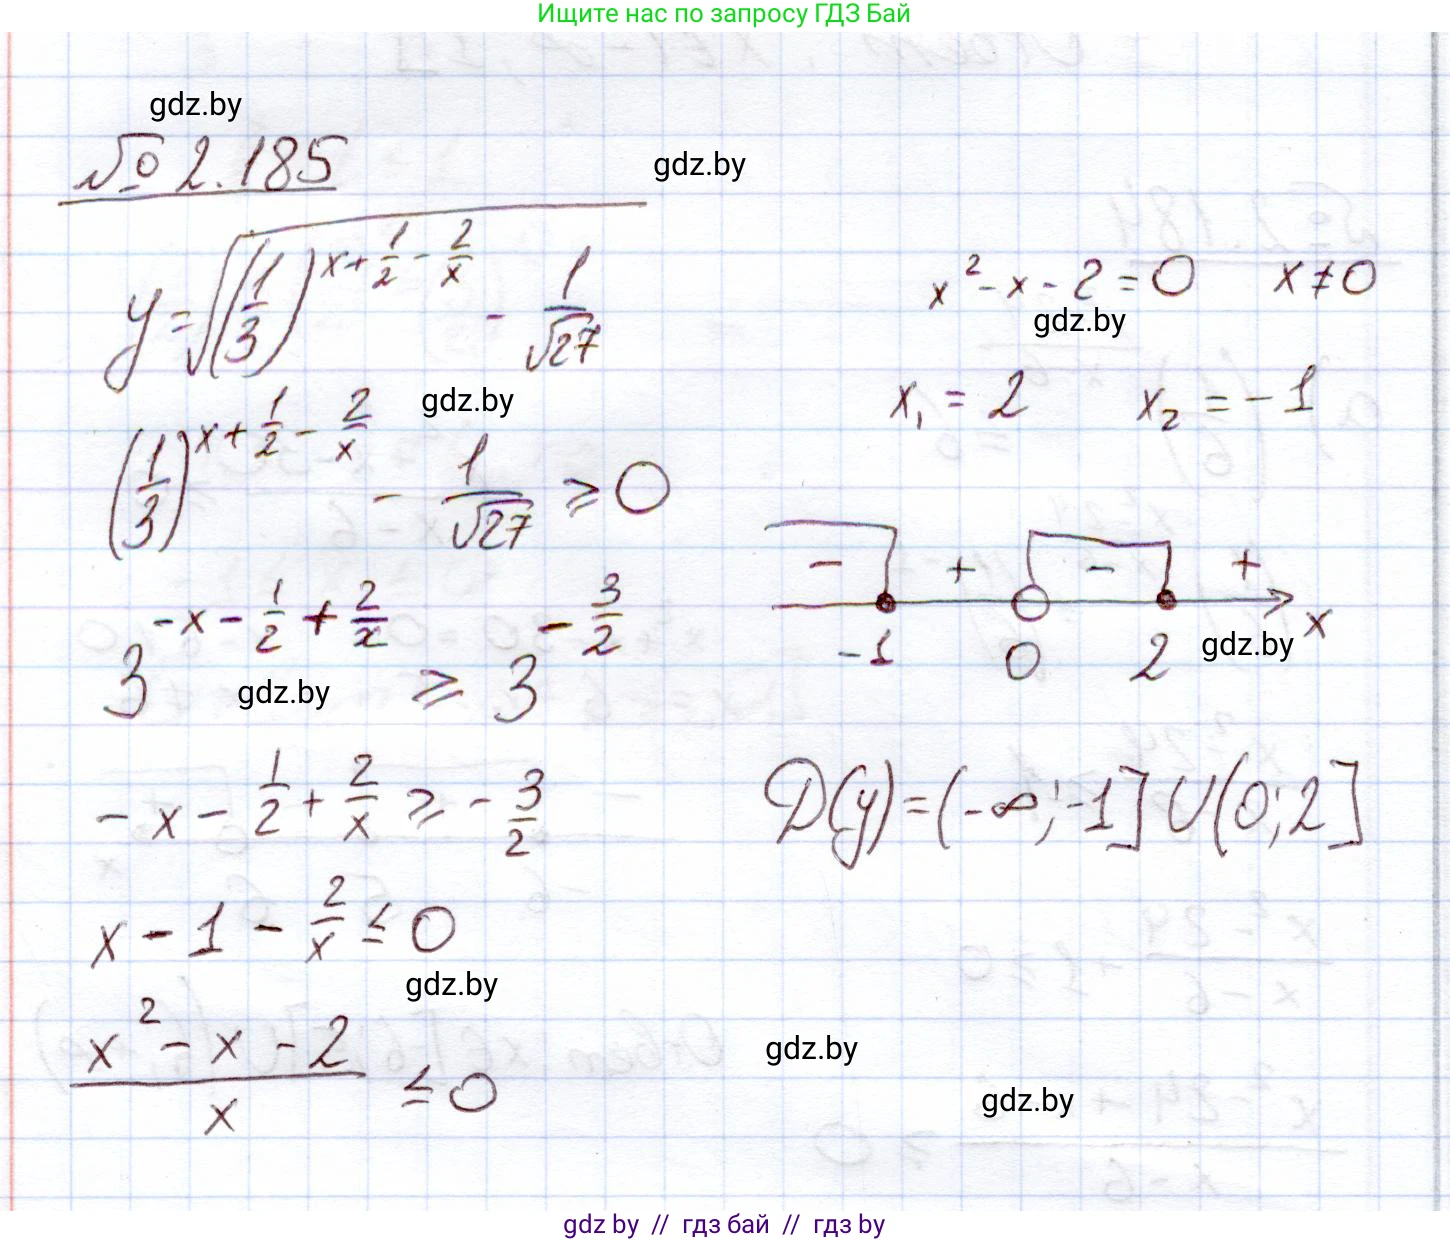 Ищите нас по запросу ГДЗ Бай
gdz.by
№ 2.185
gdz.by
y = √((1/3)^(x + 1/2 - 2/x) - 1/√27)
gdz.by
(1/3)^(x + 1/2 - 2/x) - 1/√27 ⩾ 0
3^(-x - 1/2 + 2/x) ⩾ 3^(-3/2)
gdz.by
-x - 1/2 + 2/x ⩾ -3/2
x - 1 - 2/x ≤ 0
gdz.by
(x² - x - 2)/x ≤ 0
x² - x - 2 = 0 x ≠ 0
gdz.by
x₁ = 2 x₂ = -1
- + - +
-1 0 2 x
gdz.by
D(y) = (-∞; -1] ∪ (0; 2]
gdz.by
gdz.by
gdz by // гдз бай // гдз by